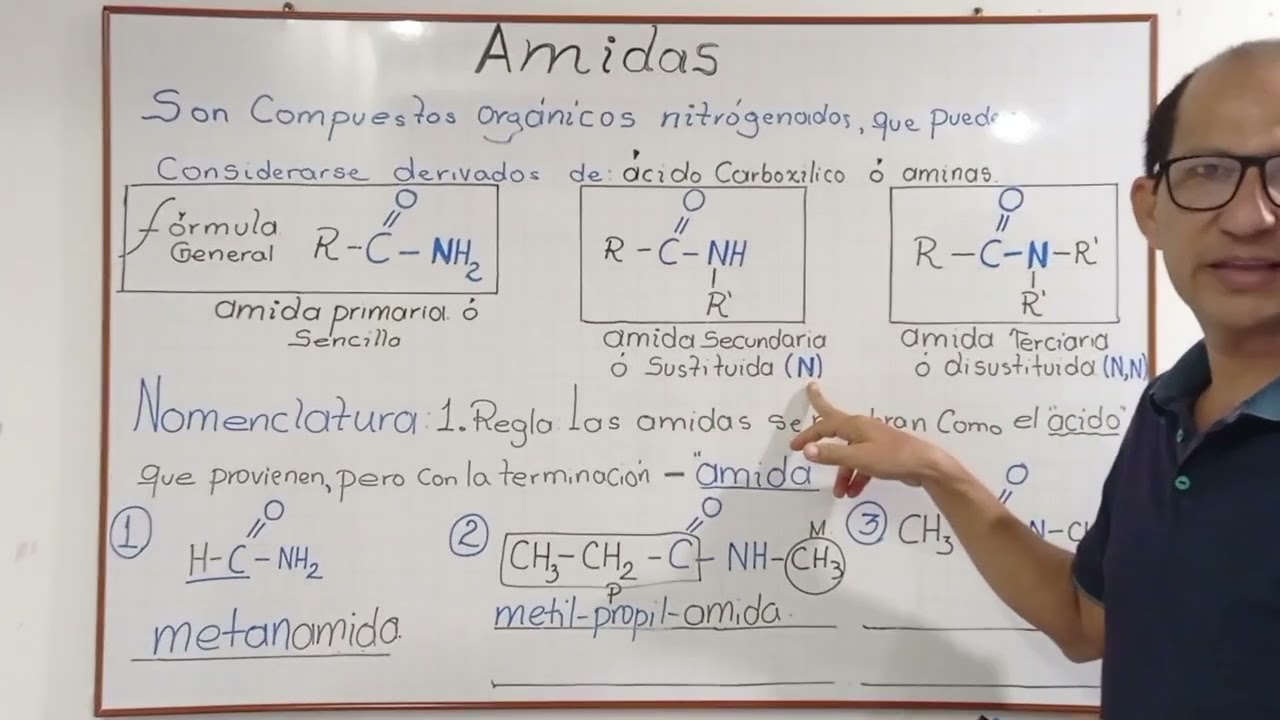 Amidas
Son Compuestos orgánicos nitrógenados, que puede
Considerarse derivados de: ácido Carboxilico ó aminas.
fórmula General
R-C-NH2
O
amida primaria ó
Sencilla
O
R-C-NH
R'
amida Secundaria
ó Sustituida (N)
O
R-C-N-R'
R'
amida Terciaria
ó disustituida (N,N)
Nomenclatura: 1. Regla las amidas se bran Como el "ácido"
que provienen, pero con la terminación - "amida
1
O
H-C-NH2
metanamida.
2
O
M.
CH3-CH2-C-NH-CH3
P
metil-propil-amida.
3
O
CH3 N-C